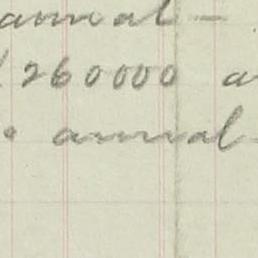 annual -
260000 a
annual